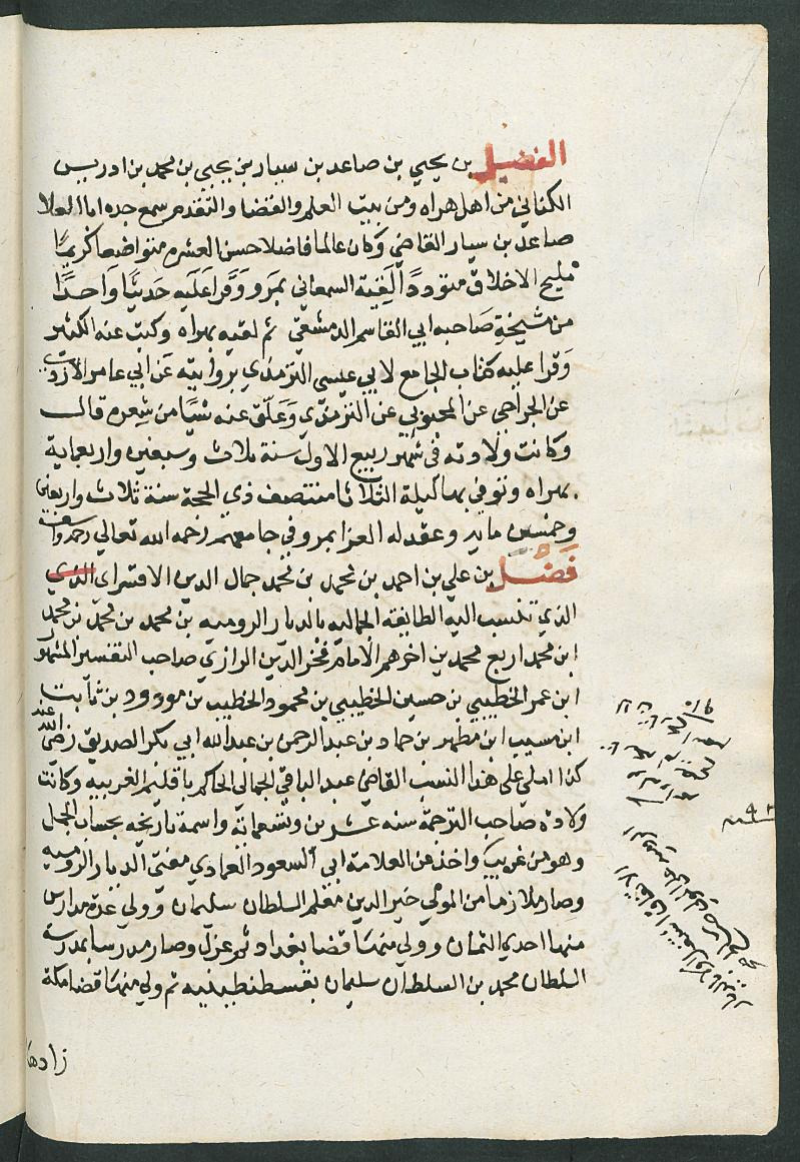 الفضيل بن يحيي بن صاعد بن سيار بن يحيي بن محمد بن ادريس
الكناني من اهل هراه ومن بيت العلم والقضا والتقدم سمع جده ابا العلا
صاعد بن سيار القاضي وكان عالما فاضلا حسن العشره متواضعا كريما
مليح الاخلاق متوددا لقيه السمعاني بمرو وقرا عليه حديثا واحدا
من مشيخة صاحبه ابي القاسم الدمشقي ثم لقيه بهراه وكتب عنه الكثير
وقرا عليه كتاب الجامع لابي عيسى الترمذي بروايته عن ابي عامر الازدي
عن الجراحي عن المحبوبي عن الترمذي وعلق عنه شيا من شعره قال
وكانت ولادته في شهر ربيع الاول سنة ثلاث وسبعين واربعماية
بهراه وتوفي بها ليلة الثلاثا منتصف ذي الحجة سنة ثلاث واربعين
وخمس ماية وعقد له العزا بمرو في جامعهم رحمه الله تعالي رحمة واسعة
فضل بن علي بن احمد بن محمد بن محمد جمال الدين الاقسراى الذي
الذي تنسب اليه الطايفة الجماليه بالديار الروميه بن محمد بن محمد بن محمد
ابن محمد اربع محمدين اخرهم الامام فخر الدين الرازي صاحب التفسير المشهور
ابن عمر الخطيبي بن حسين الخطيبي بن محمود الخطيب بن مودود بن ثابت
ابن مسيب ابن مطهر بن حماد بن عبد الرحمن بن عبد الله ابي بكر الصديق رضي الله عنه
كذا املي على هذا النسب القاضي عبد الباقي الجمالي الحاكم باقليم الغربيه وكانت
ولادة صاحب الترجمة سنه عشرين وتسعماية واسمة تاريخه بحساب الجمل
وهو من غريب واخذ عن العلامة ابي السعود العمادي مفتي الديار الروميه
وصار ملازما من المولى خير الدين معلم السلطان سليمان وولي عدة مدارس
منها احدي الثمان وولي منها قضا بغداد ثم عزل وصار مدرسا بمدرسة
السلطان محمد بن السلطان سليمان بقسطنطينيه ثم ولي منها قضا مكة
زادها